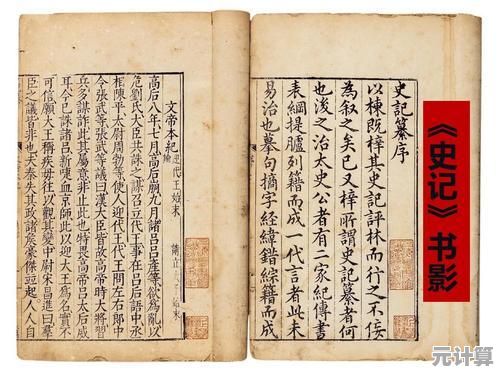 《史记》书影
史記纂序
以棟既梓其史記評林而行之不佞
為叙之矣已又梓所謂史記纂者何
也後之治太史公者有二家紀傳書
表綱提臚列籍而成一代言者此未
易治也摹句摘字經緯錯綜籍而成
文帝本紀 迎代王始末
高后八年七月高后朋九月諸呂呂產等欲為亂以
危劉氏大臣共誅之謀召立代王事在呂后語中丞
相陳平太尉周勃等使人迎代王代王問左右郎中
令張武等張武等議曰漢大臣皆故高帝時大將習
兵多謀詐此其屬意非止此也特畏高帝呂太后威
耳今已誅諸呂新啑血京師此以迎大王為名實不
可信願大王稱疾毋往以觀其變中尉宋昌進曰羣
臣之議皆非也夫秦失其政諸矦豪傑竝起人人自
元计算